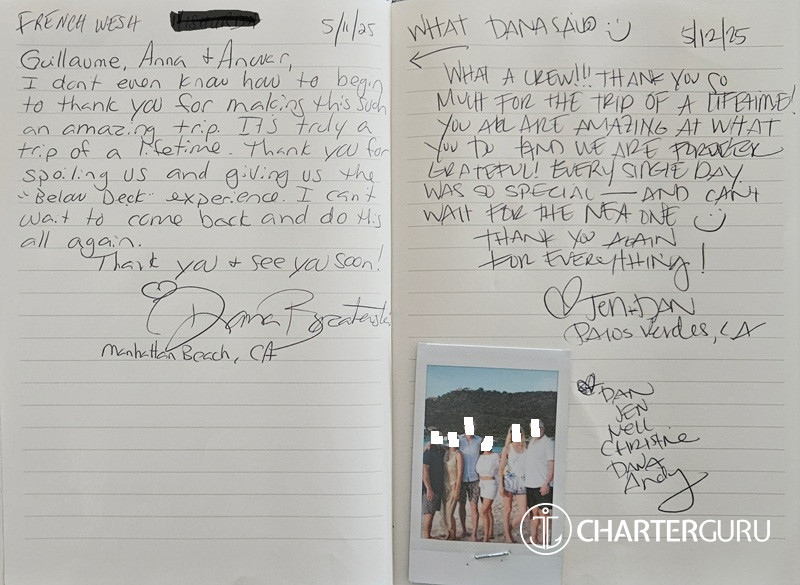 FRENCH WESH 5/11/25
Guillaume, Anna + Anouar,
I don't even know how to begin
to thank you for making this such
an amazing trip. It's truly a
trip of a lifetime. Thank you for
spoiling us and giving us the
"Below Deck" experience. I can't
wait to come back and do this
all again.
Thank you + see you soon!
Dana
Manhattan Beach, CA
WHAT DANA SAID 5/12/25
WHAT A CREW!!! THANK YOU SO
MUCH FOR THE TRIP OF A LIFETIME!
YOU ALL ARE AMAZING AT WHAT
YOU DO AND WE ARE FOREVER
GRATEFUL! EVERY SINGLE DAY
WAS SO SPECIAL — AND CAN'T
WAIT FOR THE NEXT ONE
THANK YOU AGAIN
FOR EVERYTHING!
JEN + DAN
PALOS VERDES, CA
DAN
JEN
NELL
CHRISTINE
DANA
Andy
CHARTERGURU